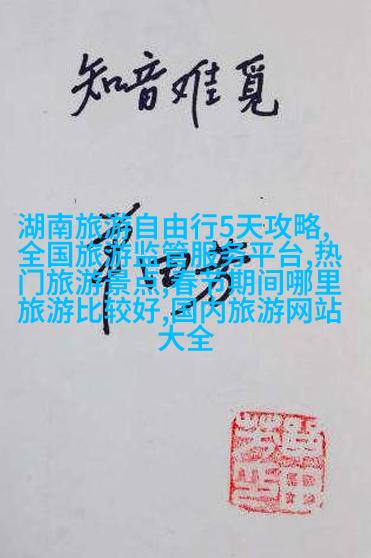 知音难觅
单田芳
湖南旅游自由行5天攻略,
全国旅游监管服务平台,热
门旅游景点,春节期间哪里
旅游比较好,国内旅游网站
大全